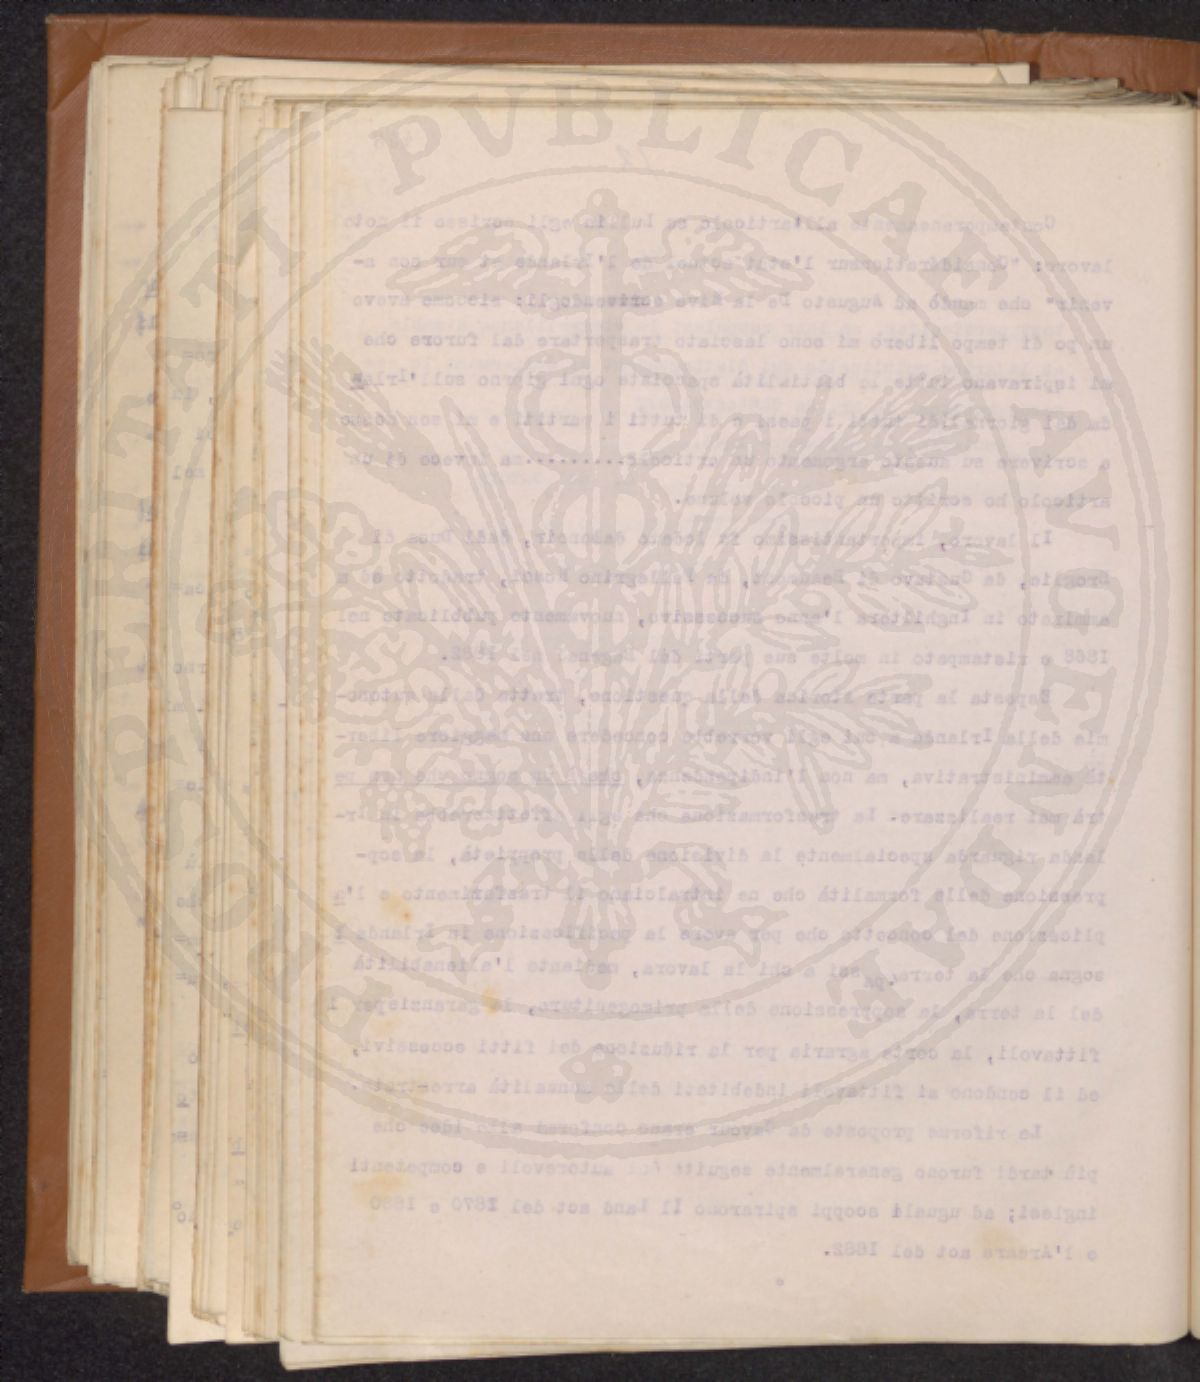 PROSPERITATI PVBLICAE AVGENDAE
Contemporaneamente all'articolo su Lullin egli scrisse il noto
lavoro: "Considérations sur l'état actuel de l'Irlande et sur son a-
venir" che mandò ad Augusto De la Rive scrivendogli: siccome avevo
un po di tempo libero mi sono lasciato trasportare dal furore che
mi ispiravano tutte le bestialità spacciate ogni giorno sull'Irlan
da dai giornali di tutti i paesi e di tutti i partiti e mi son
a scrivere su questo argomento un articolo..........ma invece di un
articolo ho scritto un piccolo volume.
Il lavoro, importantissimo fu lodato dal Duca di
Broglie, da Gustavo di Beaumont, da Pellegrino Rossi, tradotto ed a
ammirato in Inghilterra l'anno successivo, nuovamente pubblicato nel
1868 e ristampato in molte sue parti dal nel 1882.
Esposta la parte storica della questione, tratta della autono-
mia della Irlanda a cui egli vorrebbe concedere una maggiore liber-
tà amministrativa, ma non l'indipendenza, che è un sogno che non po
trà mai realizzare. La trasformazione che egli effettuerebbe in Ir-
landa riguarda specialmente la divisione della proprietà, la sop-
pressione delle formalità che ne intralciano il trasferimento e l'a
plicazione del concetto che per avere la pacificazione in Irlanda
sogna che la terra passi a chi la lavora, mediante l'alienabilità
del la terra, la soppressione della primogenitura, le garanzie per i
fittavoli, la corte agraria per la riduzione dei fitti eccessivi,
ed il condono ai fittavoli indebitati delle annualità arretrate.
Le riforme proposte da Cavour erano conformi alle idee che
più tardi furono generalmente seguite dai autorevoli e competenti
inglesi; ad uguali scoppi spirarono il Land act del 1870 e 1880
e l'Arears act del 1882.